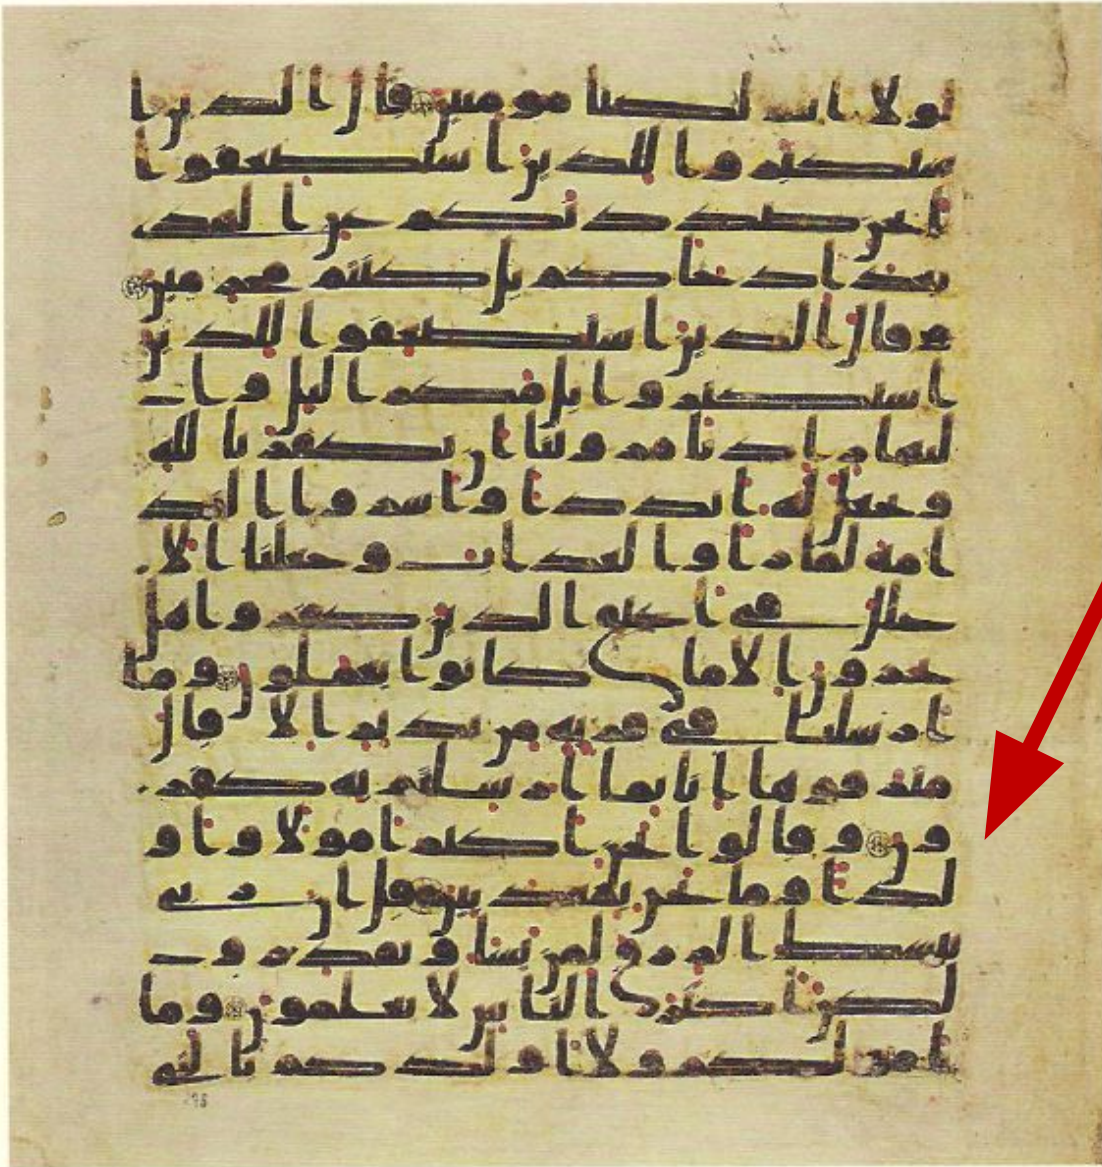 لولا انتم لكنا مومنين قال الذين ا
ستكبروا للذين استضعفوا
انحن صددنكم عن الهدى
بعد اذ جاكم بل كنتم مجرمين
وقال الذين استضعفوا للذين
استكبروا بل مكر اليل وا
لنهار اذ تامروننا ان نكفر بالله
ونجعل له اندادا واسروا الند
امة لما راوا العذاب وجعلنا الا
غلل في اعناق الذين كفروا هل
يجزون الا ما كانوا يعملون وما
ارسلنا في قرية من نذير الا قال
مترفوها انا بما ارسلتم به كفر
ون وقالوا نحن اكثر امولا وا و
لدا وما نحن بمعذبين قل ان ربي
يبسط الرزق لمن يشا ويقدر و
لكن اكثر الناس لا يعلمون وما
امولكم ولا اولدكم بالتي